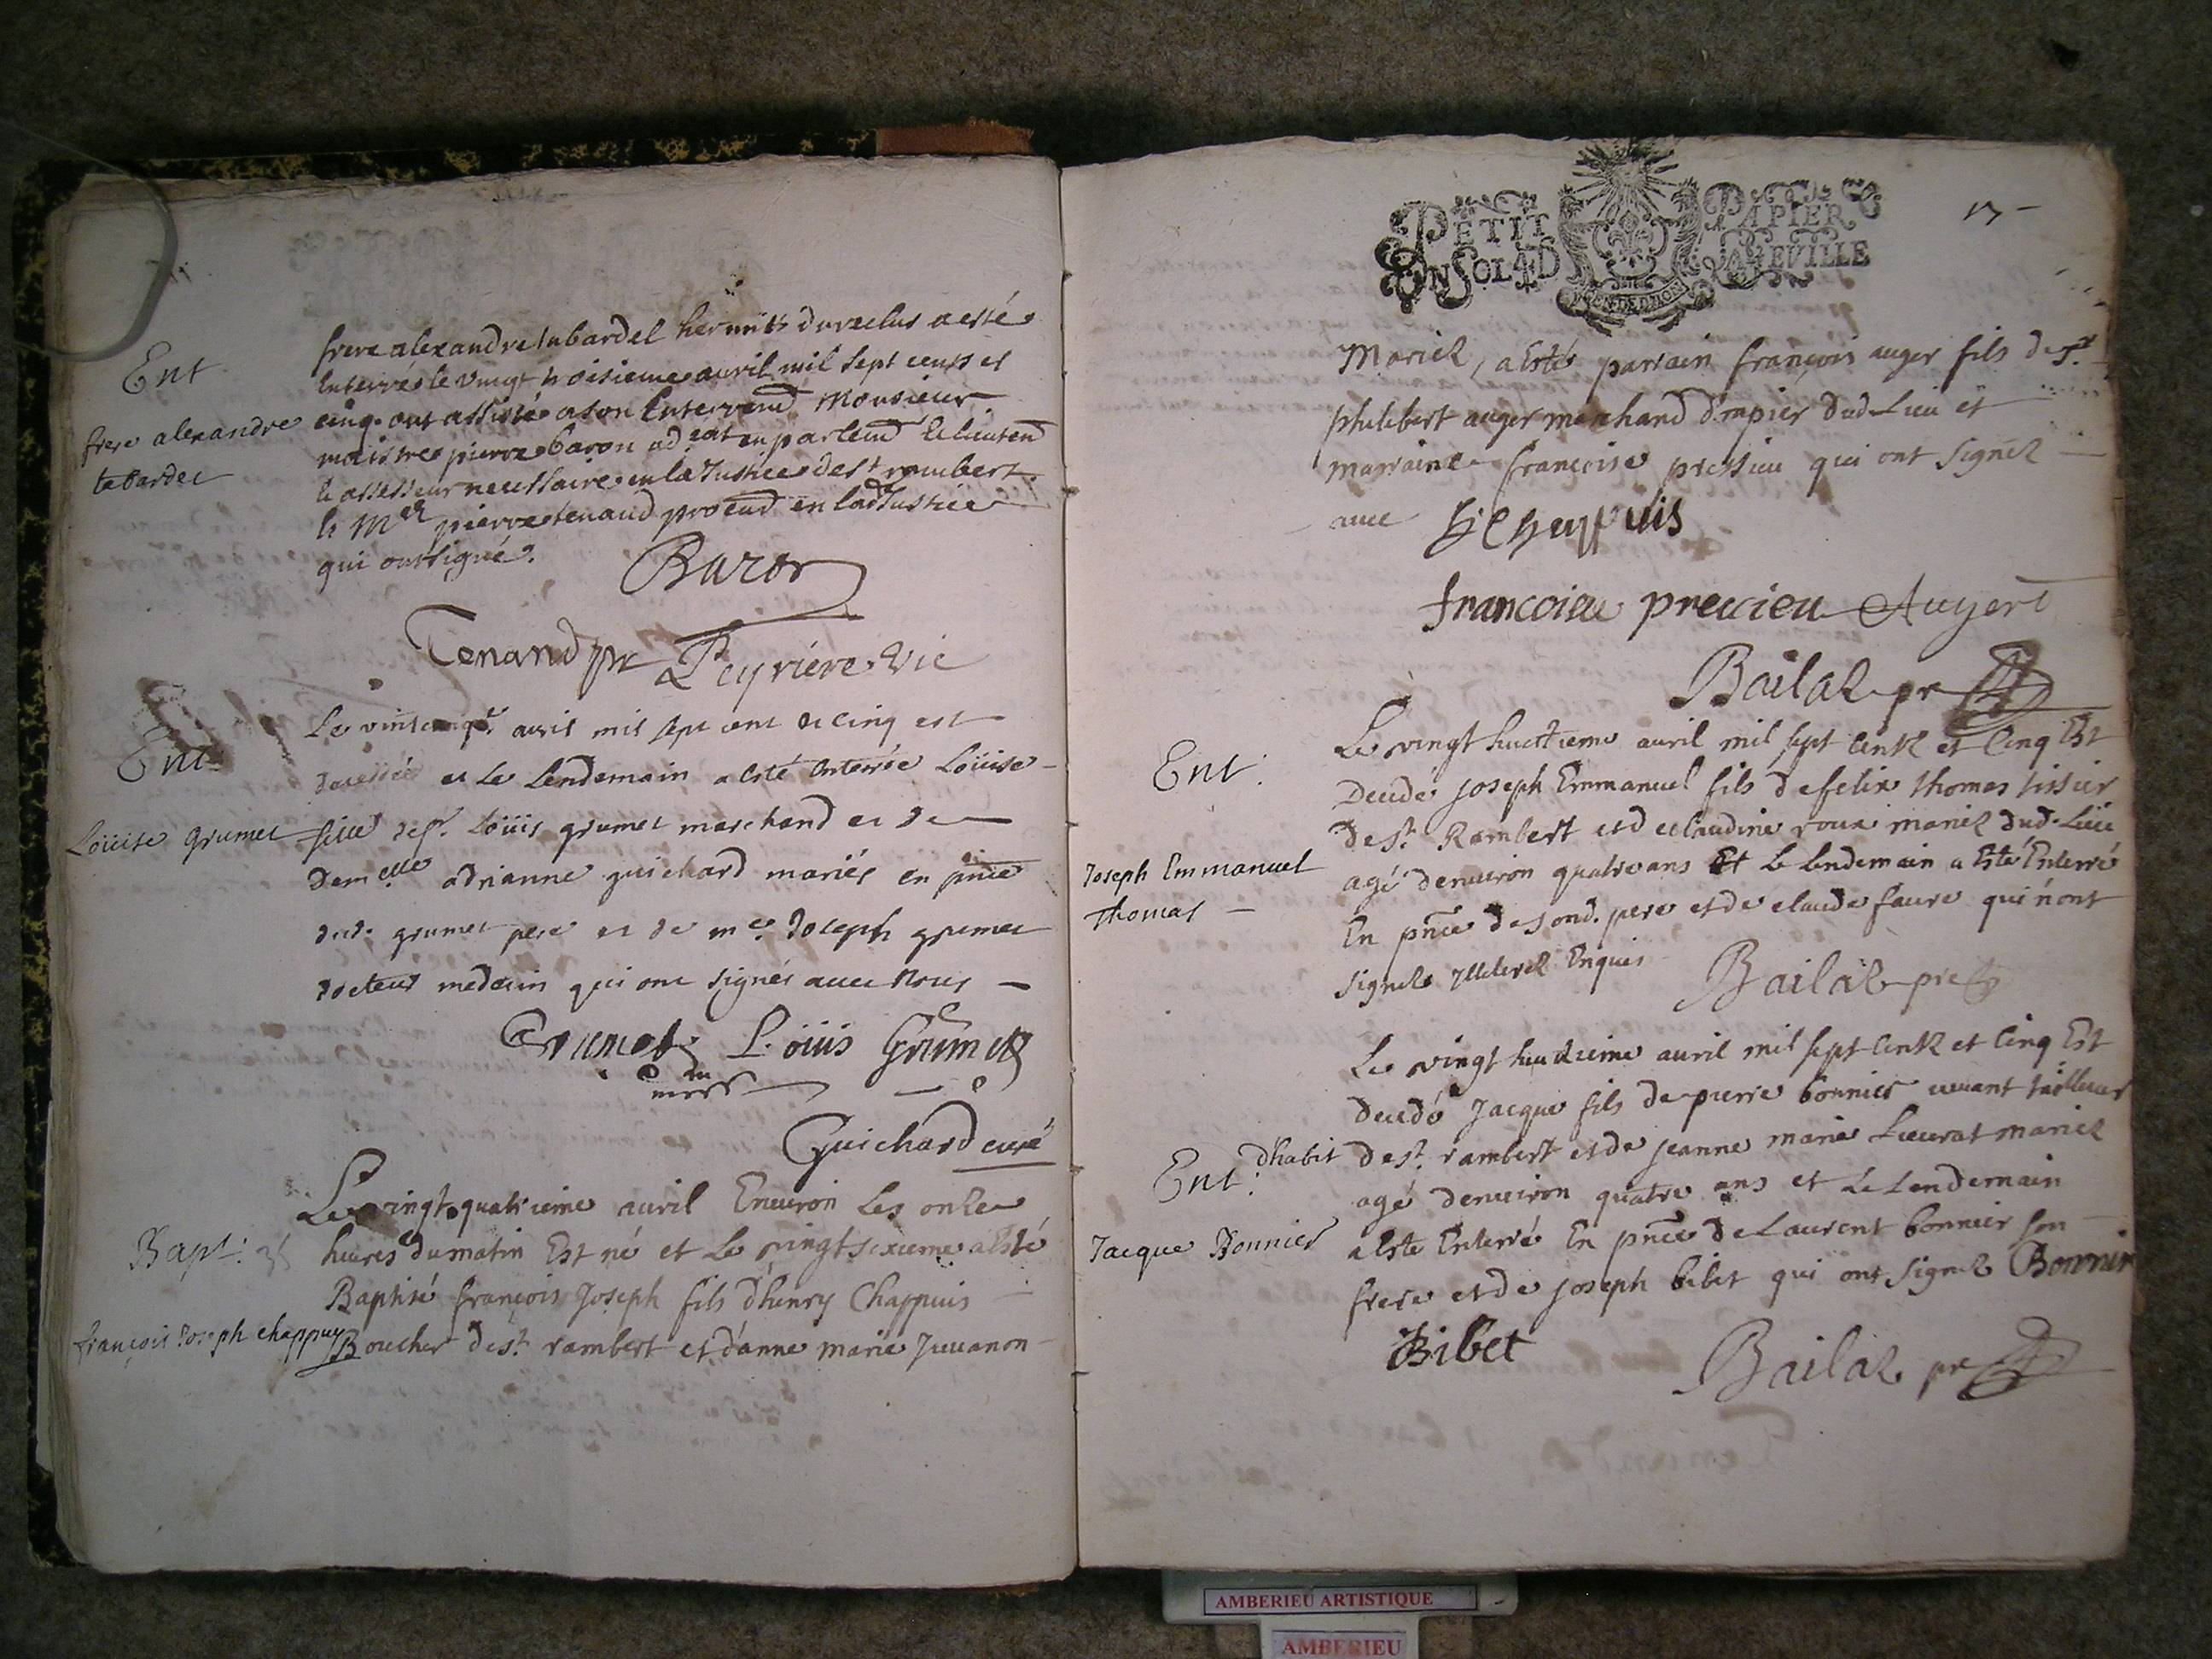 Ent
frere alexandre
tabardel
frere alexandre tabardel hermite du reclus a esté
Enterré le vingt troisieme auril mil sept cents et
cinq ont assisté a son Enterremt Monsieur
maistre pierre baron ad cat en parlemt Lieutend
& assesseur necessaire en la Justice de st rambert
& Me pierre tenand procurd en lad Justice
qui ont signé.
Baron
Tenand pr Peyriere vic
Ent
Loüise Grumet
Le vint cinq avril mil sept cent et cinq est
decedée et Le Lendemain a esté enterrée Loüise
fille de sr. Loüis grumet marchand et de
Demelle adrianne guichard mariés en pnce
dud. grumet pere et de me. Joseph grumet
docteur medecin qui ont signés auec Nous
Grumet Loüis Grumet
Guichard curé
Bapt:
françois Joseph chappuy
Le vingt quatrieme auril Enuiron Les onze
heures du matin Est né et Le vingt sixieme a Esté
Baptisé françois Joseph fils d'henry Chappuis
Boucher de st. rambert et d'anne marie Juuanon
PETIT PAPIER
UN SOL 4 D LA FEUILLE
GEN DE DIION
Mariez, a Esté parrain françois auger fils de sr.
philibert auger marchand drapier dud Lieu et
marraine françoise pressieu qui ont signez
auec h chappuis
francoise preccieu Augert
Bailaz pr
Ent:
Joseph Emmanuel
Thomas
Le vingt huictieme auril mil sept centz et Cinq Est
Decedé Joseph Emmanuel fils de felix thomas tissier
de st. Rambert et de claudine roux mariez dud. Lieu
agé denuiron quatre ans Et Le lendemain a Esté Enterré
En pnce de sond. pere et de claude faure qui n'ont
signez Illiterez Enquis
Bailaz pre
Ent:
Jacque Bonnier
Le vingt huictieme auril mil sept centz et Cinq Est
decedé Jacque fils de pierre bonnier viuant tailleur
d'habit de st. rambert et de jeanne marie Lieurat mariez
agé denuiron quatre ans et Le Lendemain
a Esté Enterré En pnce de Laurent bonnier son
frere et de joseph bibet qui ont signez Bonnier
Bibet
Bailaz pr
AMBERIEU ARTISTIQUE
AMBERIEU